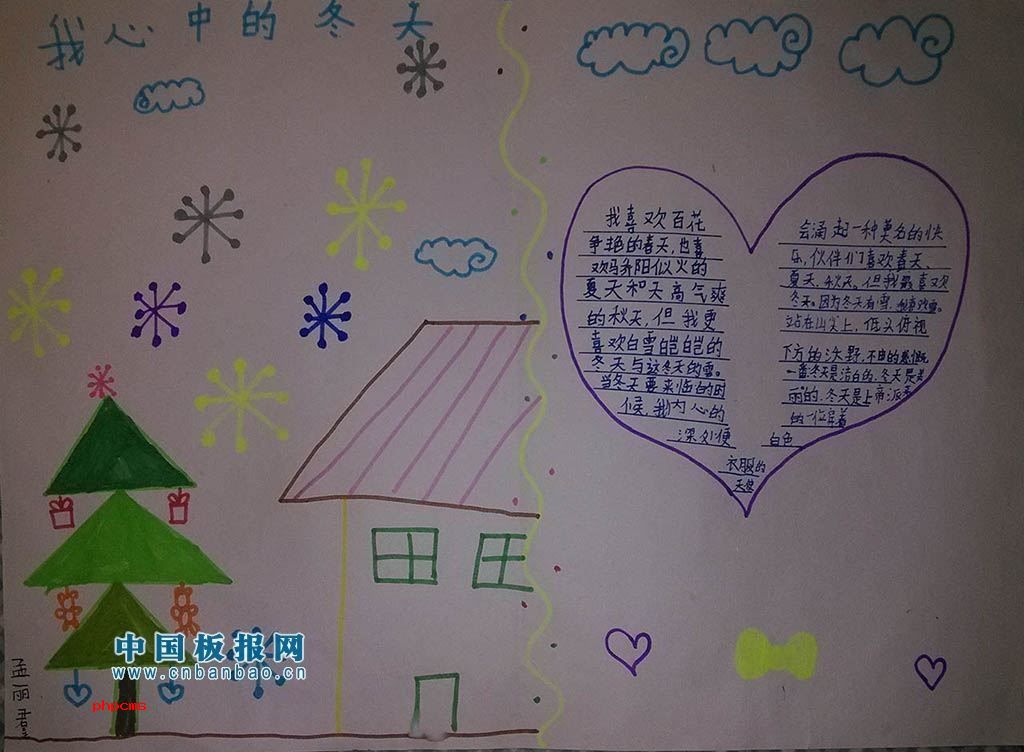 我心中的冬天
我喜欢百花
争艳的春天,也喜
欢骄阳似火的
夏天和天高气爽
的秋天,但我更
喜欢白雪皑皑的
冬天与这冬天的雪。
当冬天要来临的时
候,我内心的
深处便
会涌起一种莫名的快
乐,伙伴们喜欢春天、
夏天、秋天,但我最喜欢
冬天。因为冬天有雪,我喜欢雪。
站在山尖上,低头俯视
下方的沃野,不由的感慨
一番冬天是洁白的,冬天是美
丽的,冬天是上帝派来
的一位穿着
白色
衣服的
天使
孟丽君
中国板报网
www.cnbanbao.cn
phpcms